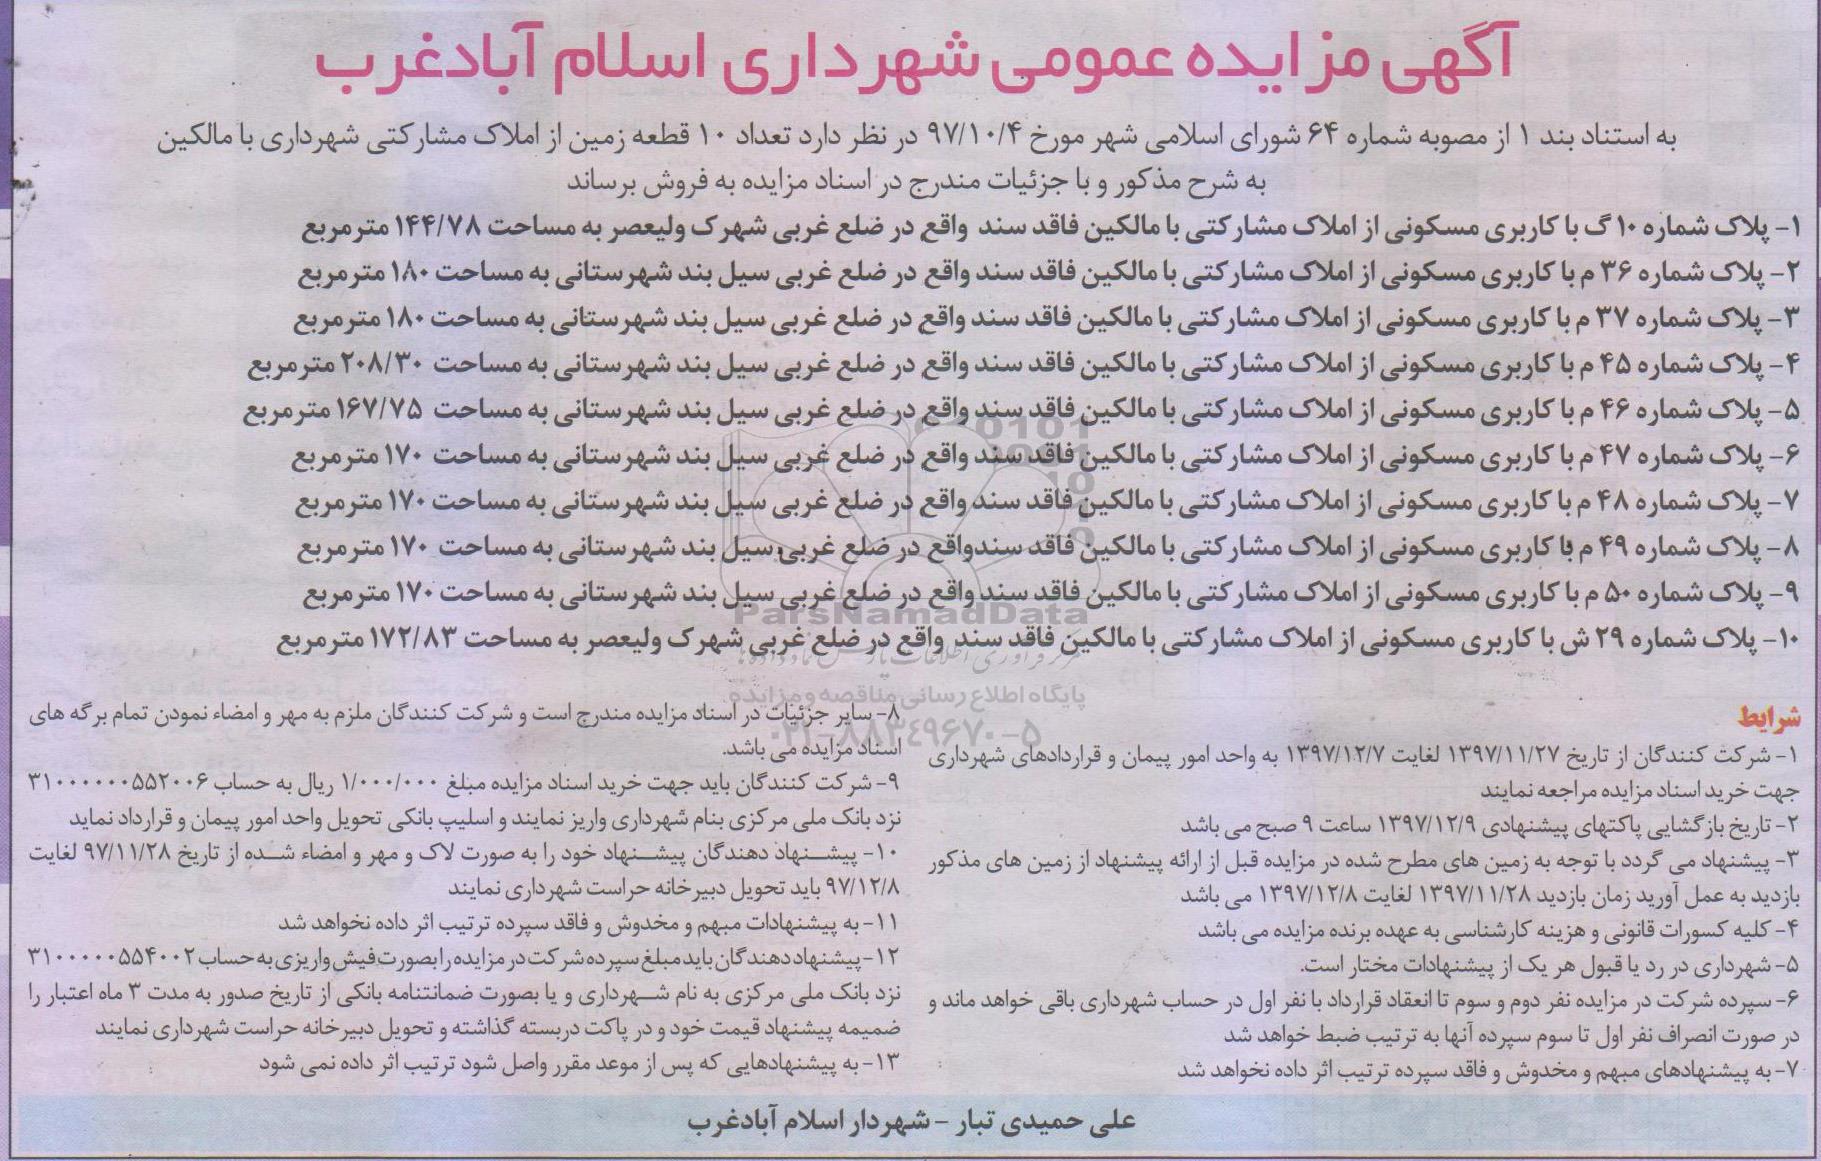 آگهی مزایده عمومی شهرداری اسلام آبادغرب
به استناد بند ۱ از مصوبه شماره ۶۴ شورای اسلامی شهر مورخ ۹۷/۱۰/۴ در نظر دارد تعداد ۱۰ قطعه زمین از املاک مشارکتی شهرداری با مالکین
به شرح مذکور و با جزئیات مندرج در اسناد مزایده به فروش برساند
۱- پلاک شماره ۱۰ گ با کاربری مسکونی از املاک مشارکتی با مالکین فاقد سند واقع در ضلع غربی شهرک ولیعصر به مساحت ۱۴۴/۷۸ مترمربع
۲- پلاک شماره ۳۶ م با کاربری مسکونی از املاک مشارکتی با مالکین فاقد سند واقع در ضلع غربی سیل بند شهرستانی به مساحت ۱۸۰ مترمربع
۳- پلاک شماره ۳۷ م با کاربری مسکونی از املاک مشارکتی با مالکین فاقد سند واقع در ضلع غربی سیل بند شهرستانی به مساحت ۱۸۰ مترمربع
۴- پلاک شماره ۴۵ م با کاربری مسکونی از املاک مشارکتی با مالکین فاقد سند واقع در ضلع غربی سیل بند شهرستانی به مساحت ۲۰۸/۳۰ مترمربع
۵- پلاک شماره ۴۶ م با کاربری مسکونی از املاک مشارکتی با مالکین فاقد سند واقع در ضلع غربی سیل بند شهرستانی به مساحت ۱۶۷/۷۵ مترمربع
۶- پلاک شماره ۴۷ م با کاربری مسکونی از املاک مشارکتی با مالکین فاقد سند واقع در ضلع غربی سیل بند شهرستانی به مساحت ۱۷۰ مترمربع
۷- پلاک شماره ۴۸ م با کاربری مسکونی از املاک مشارکتی با مالکین فاقد سند واقع در ضلع غربی سیل بند شهرستانی به مساحت ۱۷۰ مترمربع
۸- پلاک شماره ۴۹ م با کاربری مسکونی از املاک مشارکتی با مالکین فاقد سندواقع در ضلع غربی سیل بند شهرستانی به مساحت ۱۷۰ مترمربع
۹- پلاک شماره ۵۰ م با کاربری مسکونی از املاک مشارکتی با مالکین فاقد سند واقع در ضلع غربی سیل بند شهرستانی به مساحت ۱۷۰ مترمربع
ParsNamadData
۱۰- پلاک شماره ۲۹ ش با کاربری مسکونی از املاک مشارکتی با مالکین فاقد سند واقع در ضلع غربی شهرک ولیعصر به مساحت ۱۷۲/۸۳ مترمربع
مرکز فرآوری اطلاعات پارس نماد داده ها
پایگاه اطلاع رسانی مناقصه و مزایده
۰۲۱-۸۸۳۴۹۶۷۰-۵
شرایط
۱- شرکت کنندگان از تاریخ ۱۳۹۷/۱۱/۲۷ لغایت ۱۳۹۷/۱۲/۷ به واحد امور پیمان و قراردادهای شهرداری
جهت خرید اسناد مزایده مراجعه نمایند
۲- تاریخ بازگشایی پاکتهای پیشنهادی ۱۳۹۷/۱۲/۹ ساعت ۹ صبح می باشد
۳- پیشنهاد می گردد با توجه به زمین های مطرح شده در مزایده قبل از ارائه پیشنهاد از زمین های مذکور
بازدید به عمل آورید زمان بازدید ۱۳۹۷/۱۱/۲۸ لغایت ۱۳۹۷/۱۲/۸ می باشد
۴- کلیه کسورات قانونی و هزینه کارشناسی به عهده برنده مزایده می باشد
۵- شهرداری در رد یا قبول هر یک از پیشنهادات مختار است.
۶- سپرده شرکت در مزایده نفر دوم و سوم تا انعقاد قرارداد با نفر اول در حساب شهرداری باقی خواهد ماند و
در صورت انصراف نفر اول تا سوم سپرده آنها به ترتیب ضبط خواهد شد
۷- به پیشنهادهای مبهم و مخدوش و فاقد سپرده ترتیب اثر داده نخواهد شد
۸- سایر جزئیات در اسناد مزایده مندرج است و شرکت کنندگان ملزم به مهر و امضاء نمودن تمام برگه های
اسناد مزایده می باشد.
۹- شرکت کنندگان باید جهت خرید اسناد مزایده مبلغ ۱/۰۰۰/۰۰۰ ریال به حساب ۳۱۰۰۰۰۰۰۵۵۲۰۰۶
نزد بانک ملی مرکزی بنام شهرداری واریز نمایند و اسلیپ بانکی تحویل واحد امور پیمان و قرارداد نماید
۱۰- پیشنهاد دهندگان پیشنهاد خود را به صورت لاک و مهر و امضاء شده از تاریخ ۹۷/۱۱/۲۸ لغایت
۹۷/۱۲/۸ باید تحویل دبیرخانه حراست شهرداری نمایند
۱۱- به پیشنهادات مبهم و مخدوش و فاقد سپرده ترتیب اثر داده نخواهد شد
۱۲- پیشنهاد دهندگان باید مبلغ سپرده شرکت در مزایده را بصورت فیش واریزی به حساب ۳۱۰۰۰۰۰۵۵۴۰۰۲
نزد بانک ملی مرکزی به نام شهرداری و یا بصورت ضمانتنامه بانکی از تاریخ صدور به مدت ۳ ماه اعتبار را
ضمیمه پیشنهاد قیمت خود و در پاکت دربسته گذاشته و تحویل دبیرخانه حراست شهرداری نمایند
۱۳- به پیشنهادهایی که پس از موعد مقرر واصل شود ترتیب اثر داده نمی شود
علی حمیدی تبار - شهردار اسلام آبادغرب